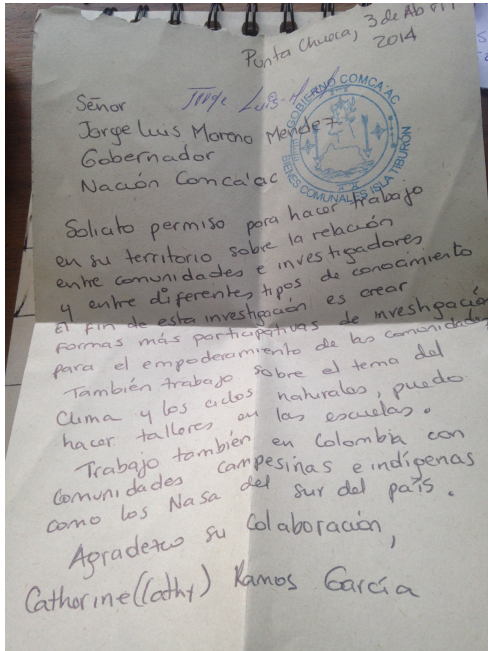 Punta Chueca, 3 de Abril
2014
Señor
Jorge Luis Moreno Mendez
Gobernador
Nación Comca'ac
GOBIERNO COMCA'AC
BIENES COMUNALES ISLA TIBURÓN
Solicito permiso para hacer trabajo
en su territorio sobre la relación
entre comunidades e investigadores
y entre diferentes tipos de conocimiento
El fin de esta investigación es crear
formas más participativas de investigación
para el empoderamiento de las comunidades
También trabajo sobre el tema del
clima y los ciclos naturales, puedo
hacer talleres en las escuelas.
Trabajo también en Colombia con
comunidades campesinas e indígenas
como los Nasa del sur del país.
Agradezco su colaboración,
Catherine (Cathy) Ramos García